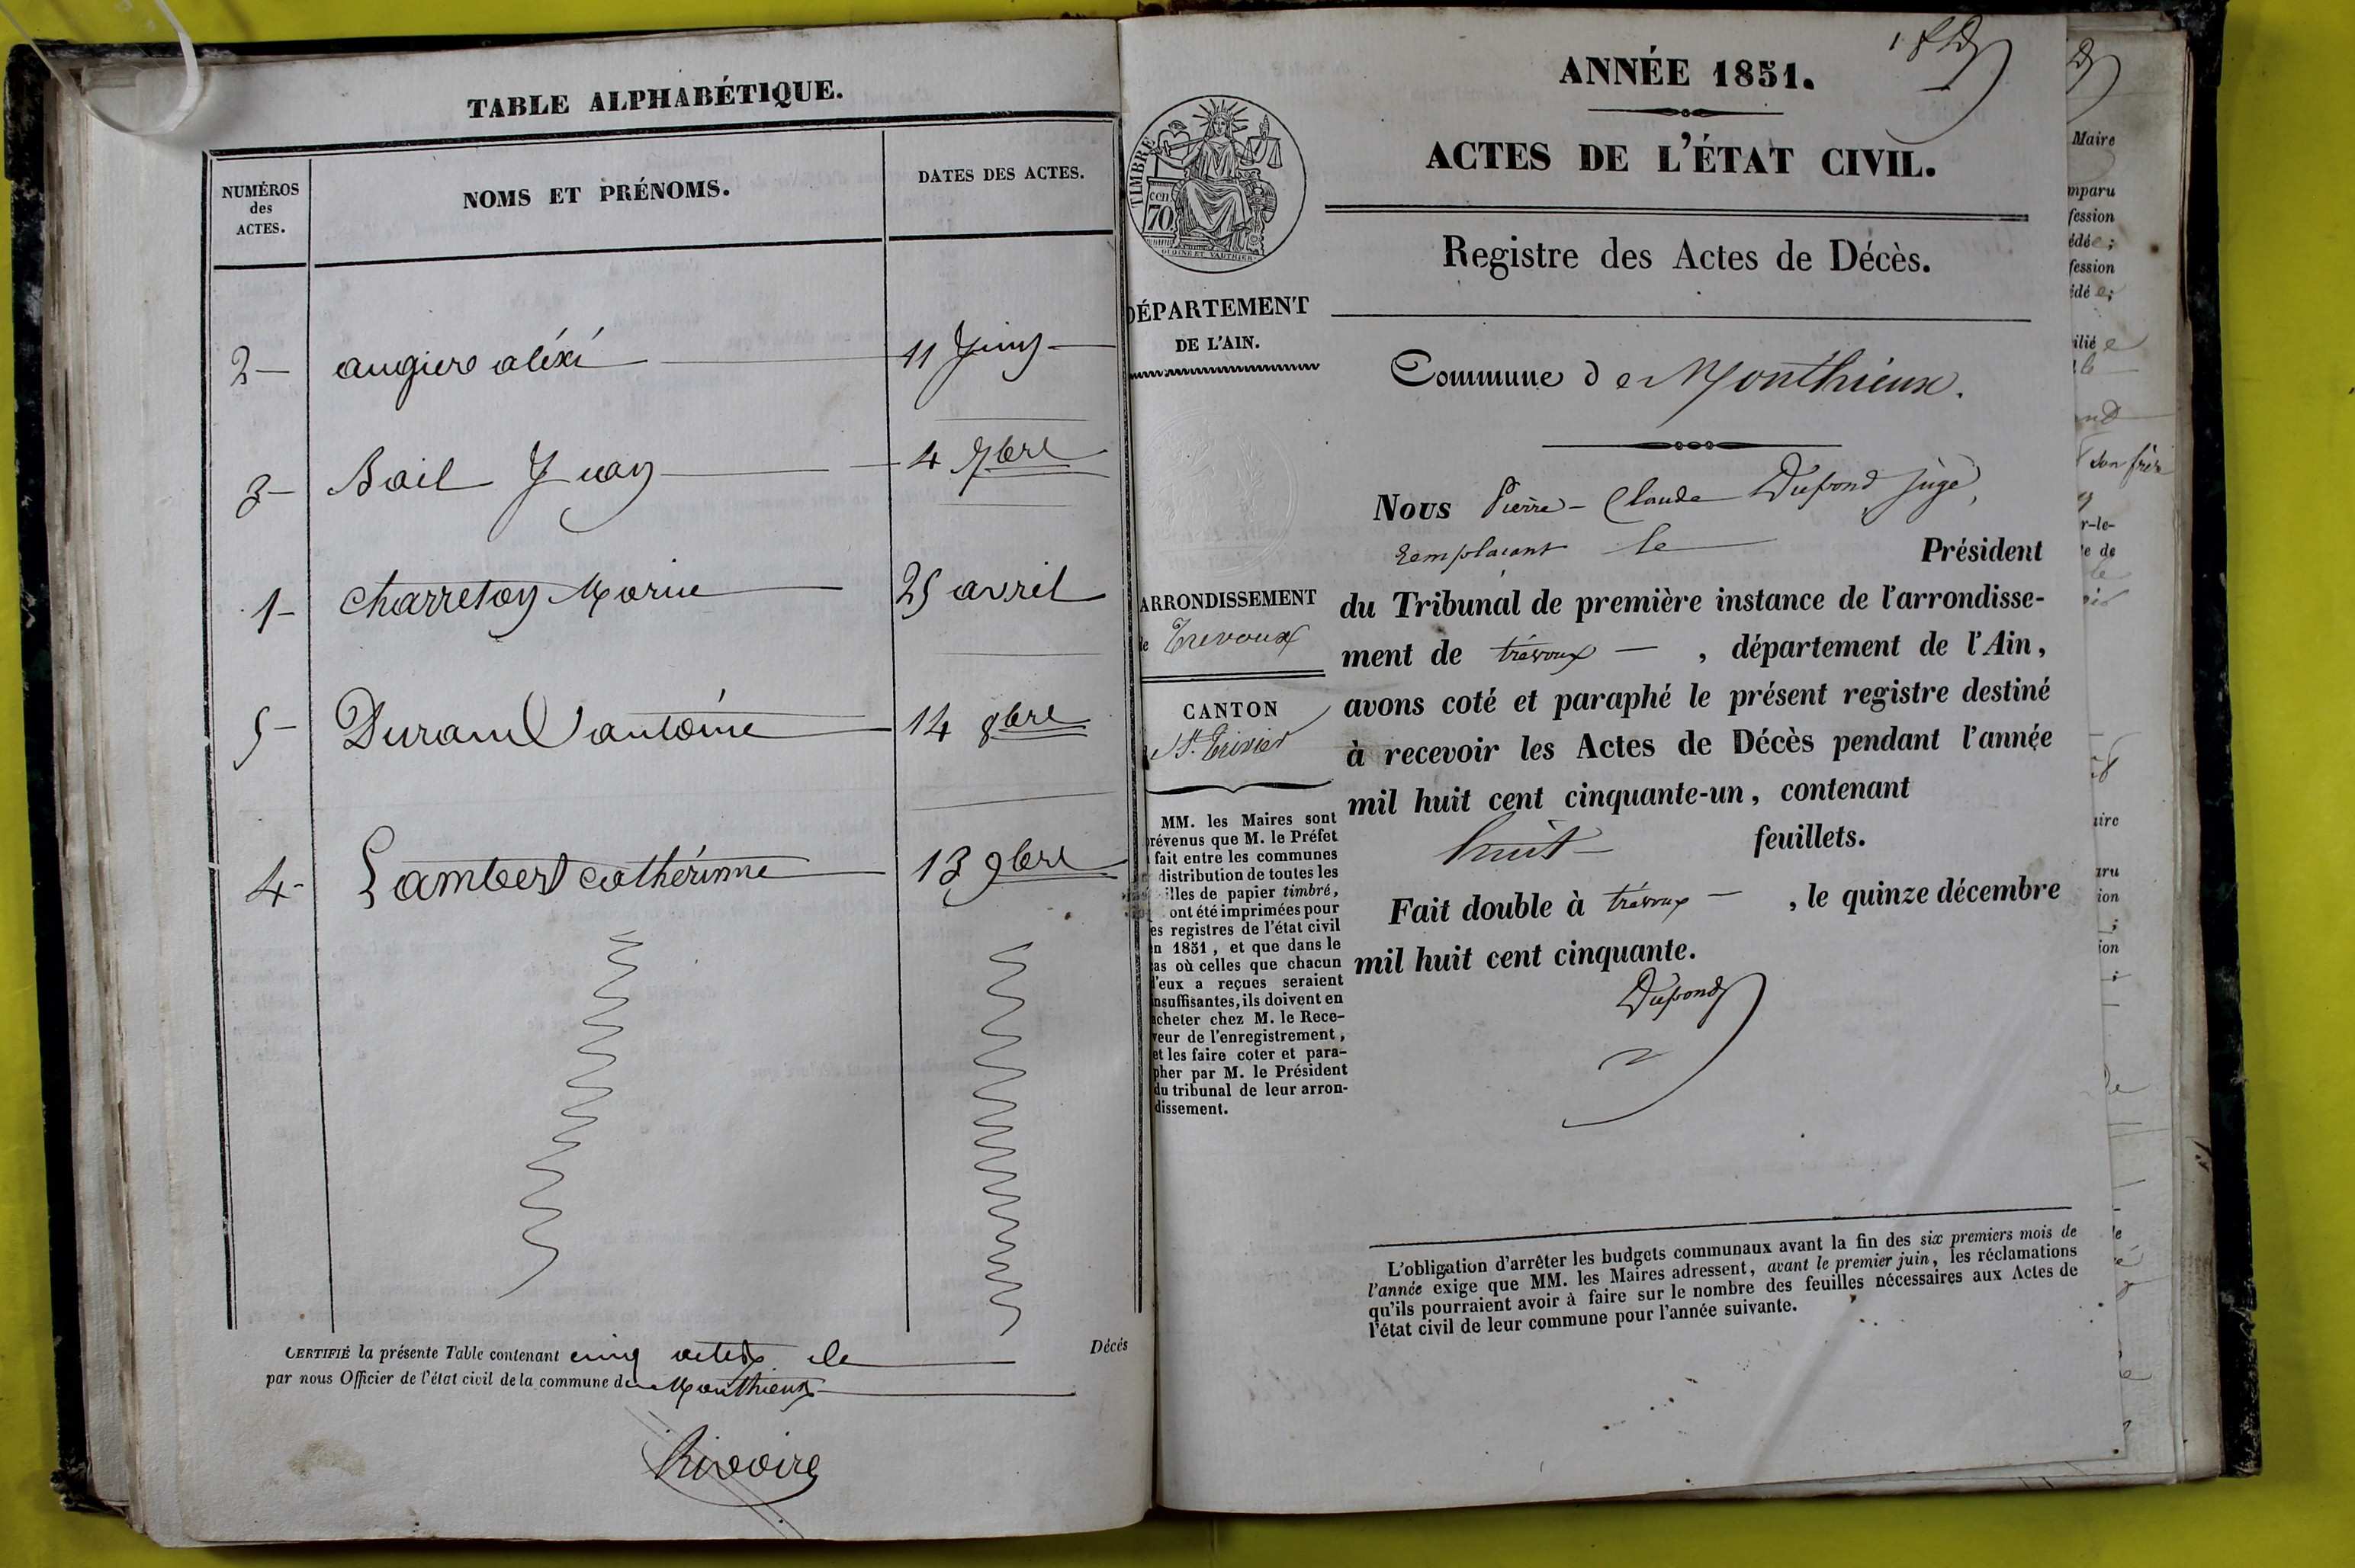 TABLE ALPHABÉTIQUE.
NUMÉROS
des
ACTES.
NOMS ET PRÉNOMS.
DATES DES ACTES.
2 — augiere aléxi — 11 Juin —
3 — Bail Jean — 4 7bre
1 — Charreton Marie — 25 avril
5 — Durand antoine — 14 8bre
4 — Lambert cathérinne — 13 9bre
CERTIFIÉ la présente Table contenant cinq actes de
par nous Officier de l'état civil de la commune de Monthieux
Décés
Rivoire
ANNÉE 1851.
ACTES DE L'ÉTAT CIVIL.
Registre des Actes de Décès.
TIMBRE
70 cen.
DÉPARTEMENT
DE L'AIN.
Commune de Monthieux.
ARRONDISSEMENT
de Trevoux
CANTON
St. Trivier
MM. les Maires sont
prévenus que M. le Préfet
fait entre les communes
distribution de toutes les
illes de papier timbré,
ont été imprimées pour
es registres de l'état civil
n 1851, et que dans le
as où celles que chacun
d'eux a reçues seraient
insuffisantes, ils doivent en
acheter chez M. le Rece-
veur de l'enregistrement,
et les faire coter et para-
pher par M. le Président
du tribunal de leur arron-
dissement.
Nous Pierre - Claude Dupond juge,
remplacant le Président
du Tribunal de première instance de l'arrondisse-
ment de trévoux — , département de l'Ain,
avons coté et paraphé le présent registre destiné
à recevoir les Actes de Décès pendant l'année
mil huit cent cinquante-un, contenant
huit — feuillets.
Fait double à trévoux — , le quinze décembre
mil huit cent cinquante.
Dupond
L'obligation d'arrêter les budgets communaux avant la fin des six premiers mois de
l'année exige que MM. les Maires adressent, avant le premier juin, les réclamations
qu'ils pourraient avoir à faire sur le nombre des feuilles nécessaires aux Actes de
l'état civil de leur commune pour l'année suivante.
Maire
mparu
fession
édée;
fession
édée;
ilié e
son frère
r-le-
te de
aire
aru
ion
ion